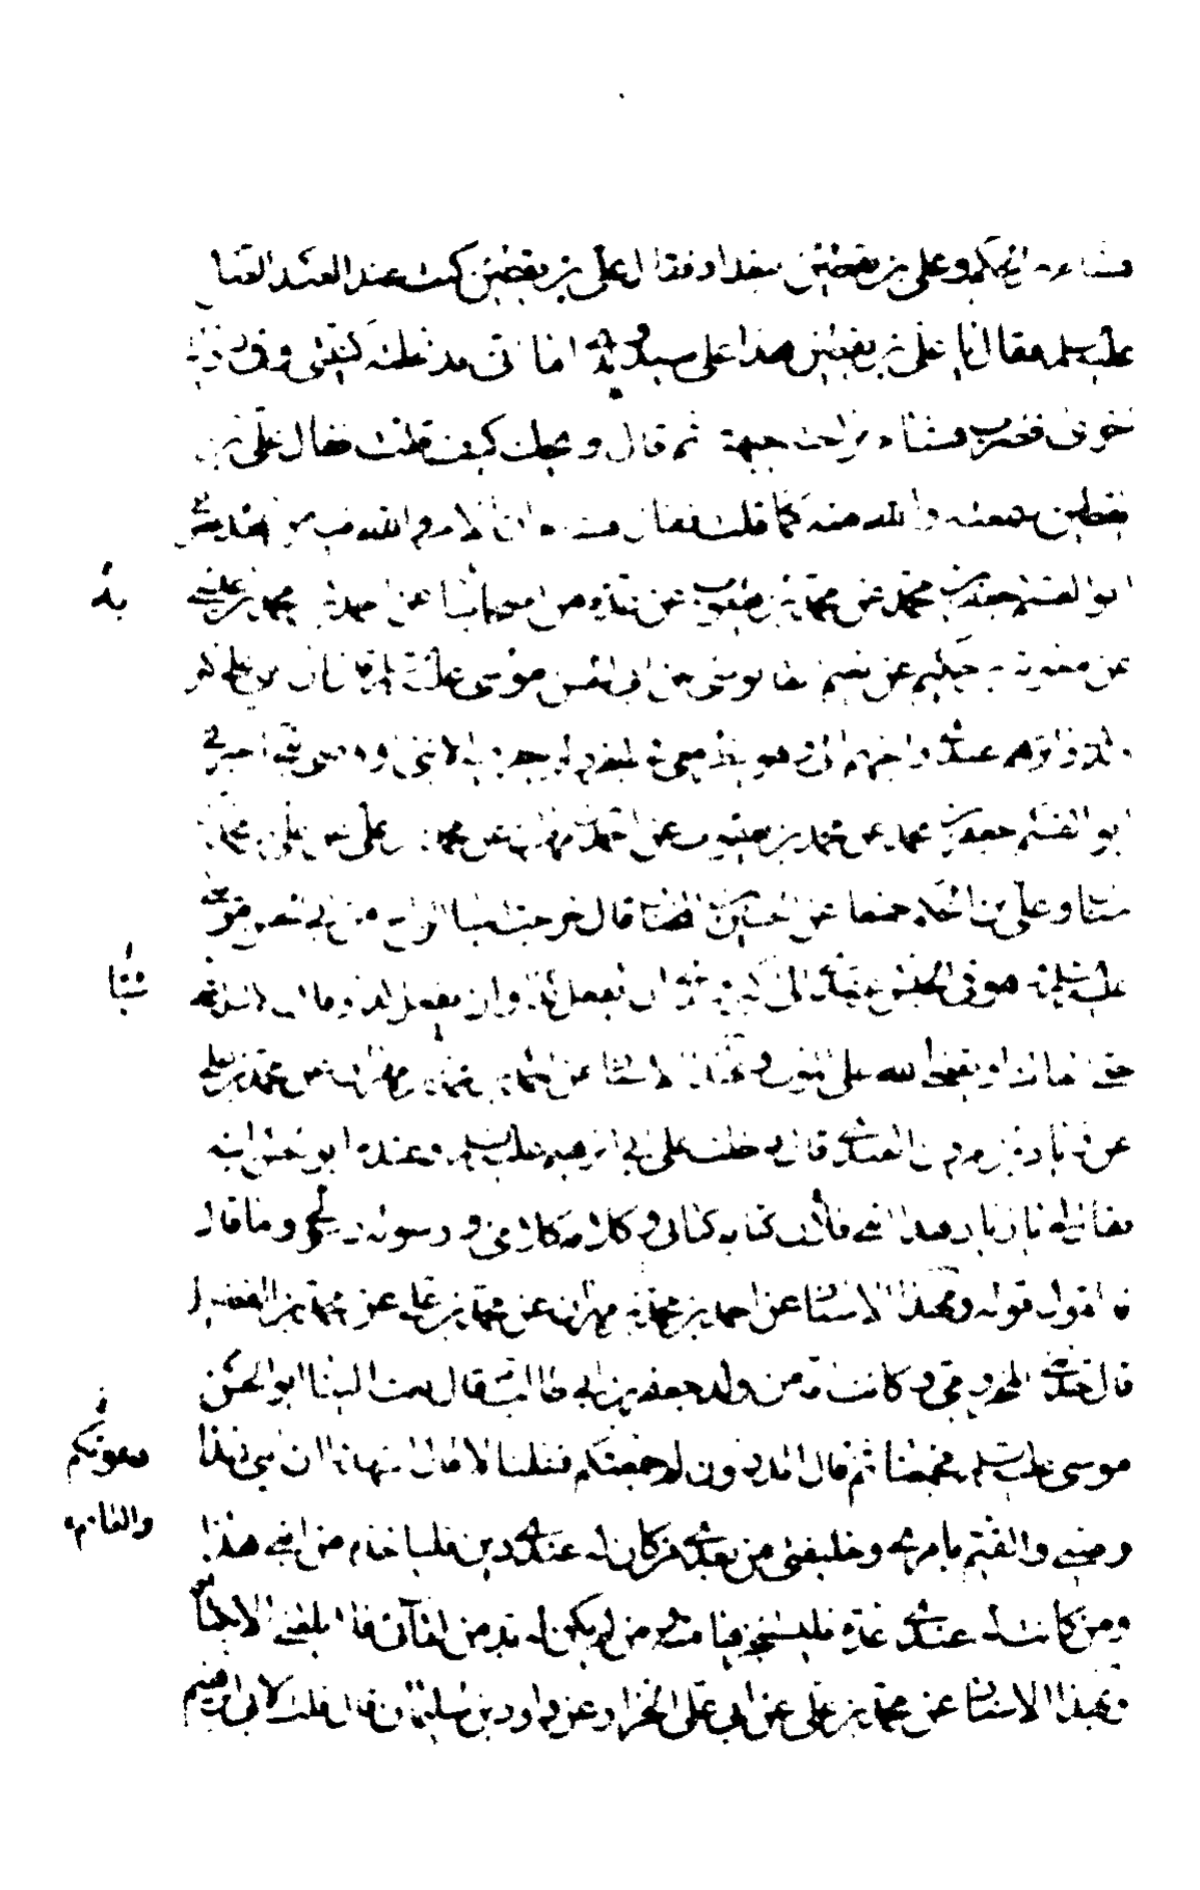 هشام بن الحكم وعلي بن يقطين ببغداد فقال علي بن يقطين كنت عند العبد الصالح
عليه السلم فقال يا علي بن يقطين هذا علي سيد ولدي اما اني قد نحلته كنيتي وفي رواية
اخرى فضرب هشام براحته جبهته ثم قال ويحك كيف قلت فقال علي بن
يقطين سمعته والله منه كما قلت فقال هشام ان الامر والله فيه من بعده اخبرني
ابو القسم جعفر بن محمد عن محمد بن يعقوب عن عدة من اصحابنا عن احمد بن محمد بن عيسى
عن معوية بن حكيم عن نعيم القابوسي عن ابي الحسن موسى عليه السلم قال ابني علي اكبر
ولدي وآثرهم عندي واحبهم الي وهو ينظر معي في الجفر ولم ينظر فيه الا نبي او وصي نبي اخبرني
ابو القسم جعفر بن محمد عن محمد بن يعقوب عن احمد بن مهران عن محمد بن علي عن محمد بن
سنان وعلي بن الحكم جميعا عن الحسين بن المختار قال خرجت الينا الواح من ابي الحسن موسى
عليه السلم وهو في الحبس عهدي الى اكبر ولدي ان يفعل كذا وان يفعل كذا وفلان لا تنله شيئا
حتى القاك او يقضي الله علي الموت وبهذا الاسناد عن احمد بن مهران عن محمد بن علي
عن زياد بن مروان القندي قال دخلت على ابي ابرهيم عليه السلم وعنده ابو الحسن ابنه
فقال لي يا زياد هذا ابني فلان كتابه كتابي وكلامه كلامي ورسوله رسولي وما قال
فالقول قوله وبهذا الاسناد عن احمد بن محمد بن مهران عن محمد بن علي عن محمد بن الفضيل
قال حدثني المخزومي وكانت امه من ولد جعفر بن ابي طالب قال بعث الينا ابو الحسن
موسى عليه السلم فجمعنا ثم قال اتدرون لم جمعتكم فقلنا لا فقال اشهدوا ان ابني هذا
وصيي والقيم بامري وخليفتي من بعدي من كان له عندي دين فلياخذه من ابني هذا
ومن كانت له عندي عدة فليستنجزها منه ومن لم يكن له بد من لقائي فلا يلقني الا بكتابه
وبهذا الاسناد عن محمد بن علي عن ابي علي الخزاز عن داود بن سليمان قال قلت لابي ابرهيم
يدعوتكم
والقائم